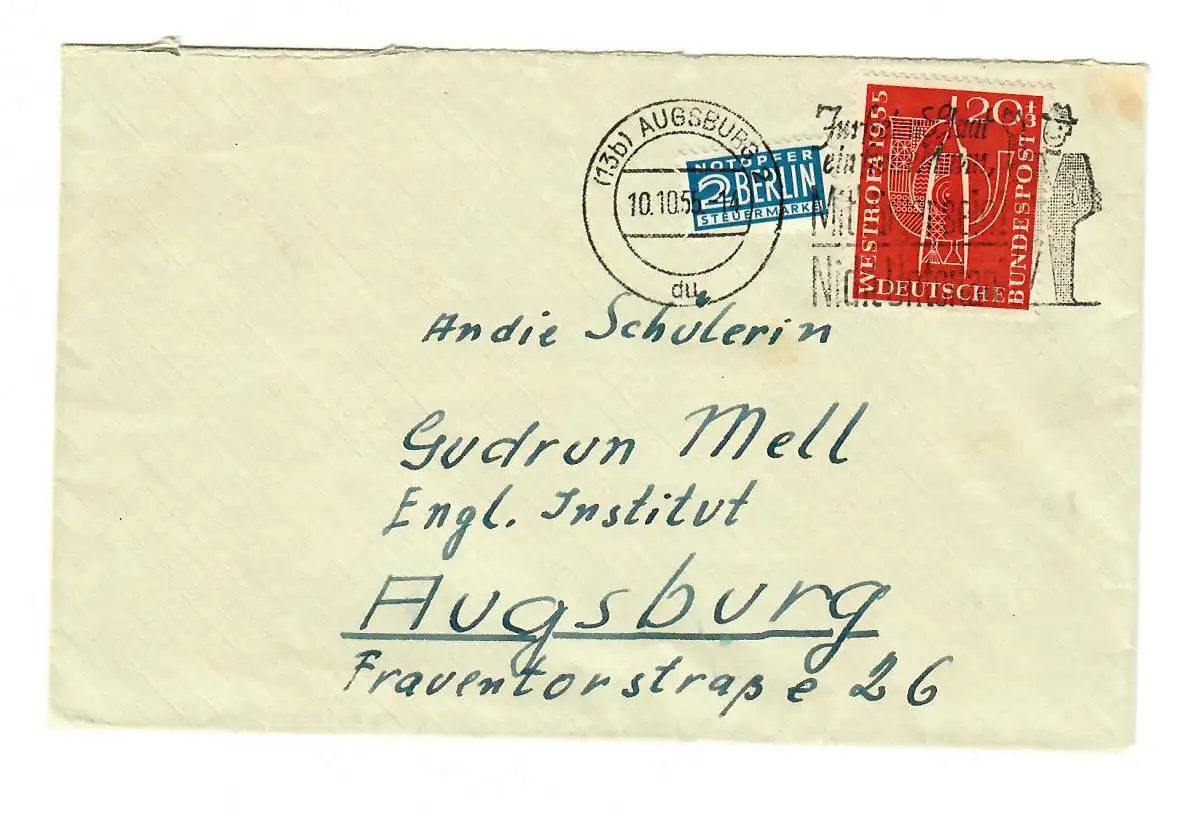 (13b) AUGSBURG 2
10.10.55-14
du
NOTOPFER
2 BERLIN
STEUERMARKE
WESTROPA 1955
20+3
DEUTSCHE
BUNDESPOST
Andie Schülerin
Gudrun Mell
Engl. Institut
Augsburg
Frauentorstraße 26